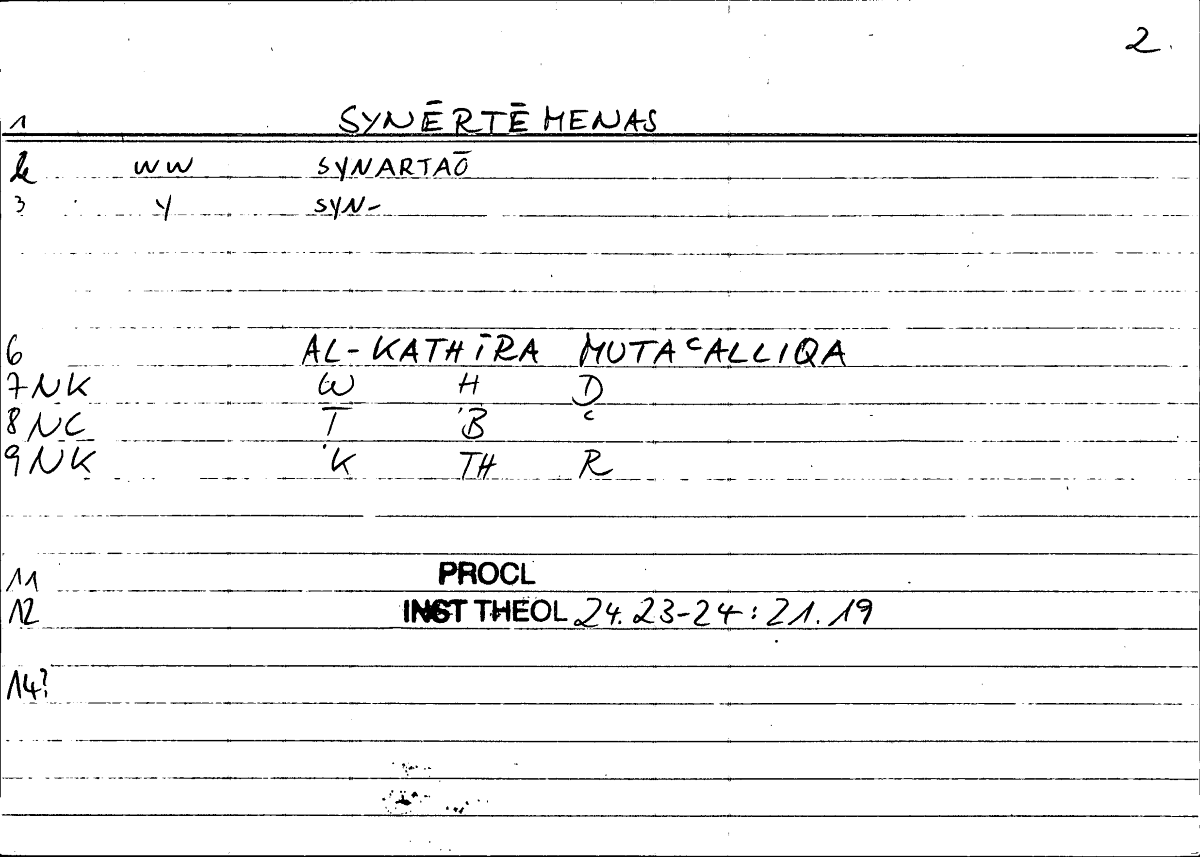 2.
1 SYNĒRTĒMENAS
2 WW SYNARTAŌ
3 Y SYN-
6 AL-KATHĪRA MUTAᶜALLIQA
7 NK W H D
8 NC T B ᶜ
9 NK K TH R
11 PROCL
12 INST THEOL 24.23-24:21.19
14?